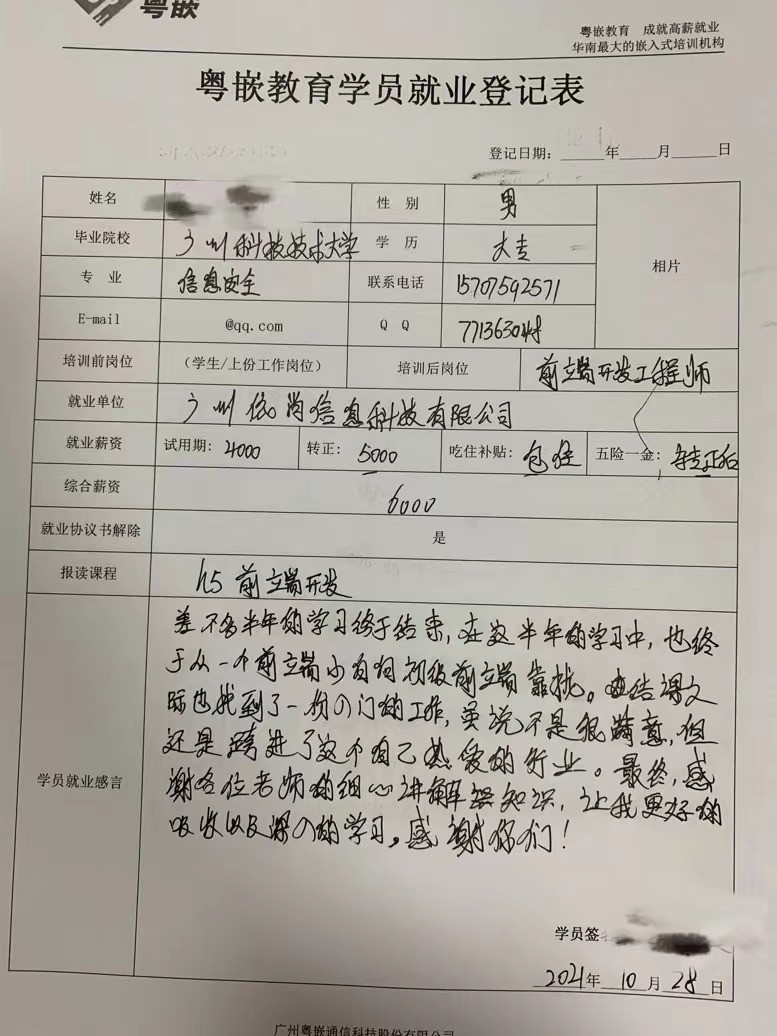 粤嵌
粤嵌教育 成就高薪就业
华南最大的嵌入式培训机构
粤嵌教育学员就业登记表
登记日期：____年____月____日
姓名 性 别 男
毕业院校 广州科技技术大学 学 历 大专 相片
专 业 信息安全 联系电话 15707592571
E-mail @qq.com Q Q 7713630
培训前岗位 （学生/上份工作岗位） 培训后岗位 前端开发工程师
就业单位 广州依尚信息科技有限公司
就业薪资 试用期：4000 转正：5000 吃住补贴：包住 五险一金：转正后
综合薪资 6000
就业协议书解除 是
报读课程 h5 前端开发
学员就业感言
差不多半年的学习终于结束，在这半年的学习中，也终
于从一个前端小白向初级前端靠拢。结课之
际也找到了一份入门的工作，虽说不是很满意，但
还是跨进了这个自己热爱的行业。最终，感
谢各位老师的细心讲解知识，让我更好的
吸收以及深入的学习。感谢你们！
学员签
2021年 10 月 28 日
广州粤嵌通信科技股份有限公司